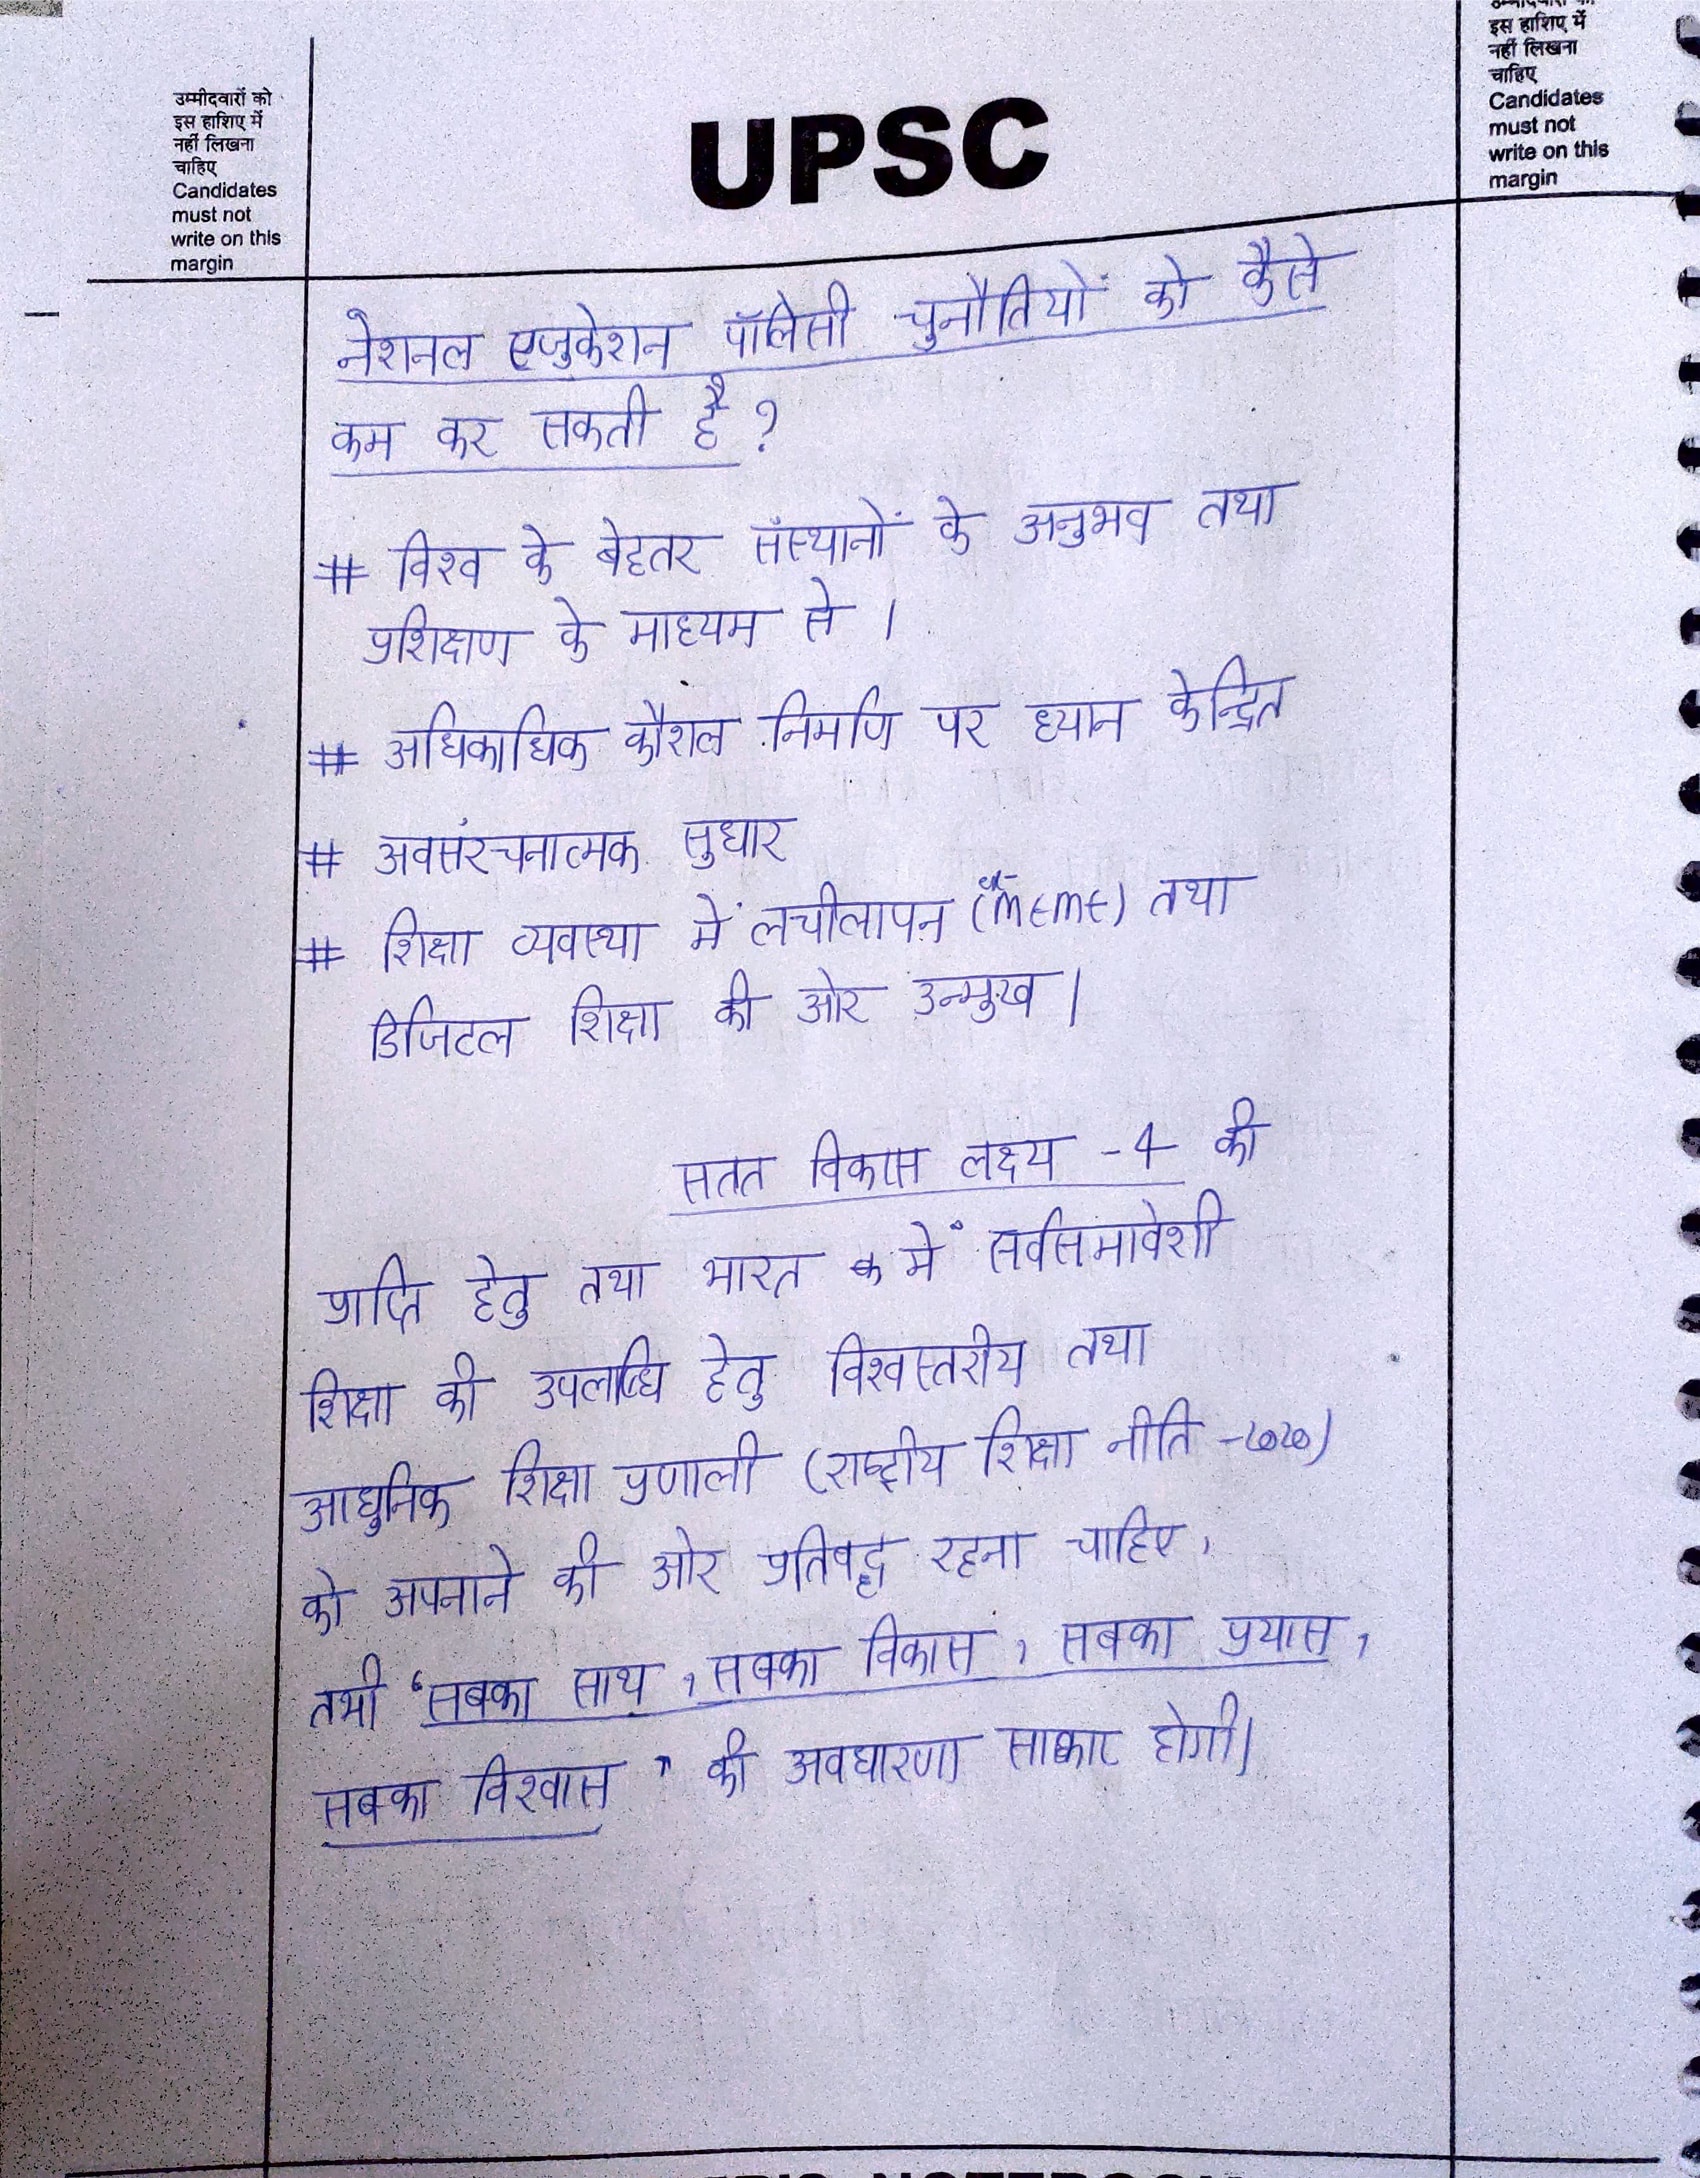 उम्मीदवारों को
इस हाशिए में
नहीं लिखना
चाहिए
Candidates
must not
write on this
margin
UPSC
इस हाशिए में
नहीं लिखना
चाहिए
Candidates
must not
write on this
margin
नेशनल एजुकेशन पॉलिसी चुनौतियों को कैसे
कम कर सकती है ?
# विश्व के बेहतर संस्थानों के अनुभव तथा
प्रशिक्षण के माध्यम से ।
# अधिकाधिक कौशल निर्माण पर ध्यान केन्द्रित
# अवसंरचनात्मक सुधार
# शिक्षा व्यवस्था में लचीलापन तथा
डिजिटल शिक्षा की ओर उन्मुख ।
सतत विकास लक्ष्य - 4 की
प्राप्ति हेतु तथा भारत में सर्वसमावेशी
शिक्षा की उपलब्धि हेतु विश्वस्तरीय तथा
आधुनिक शिक्षा प्रणाली (राष्ट्रीय शिक्षा नीति -2020)
को अपनाने की ओर प्रतिबद्ध रहना चाहिए,
तभी "सबका साथ, सबका विकास, सबका प्रयास,
सबका विश्वास" की अवधारणा साकार होगी।